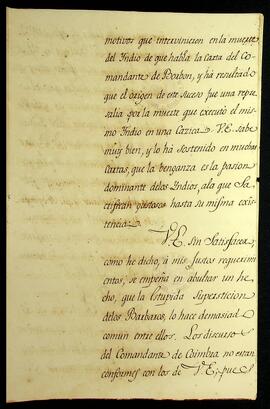 motivos que intervinieron en la muerte
del Indio de que habla la Carta del Co-
mandante de Borbon, y há resultado
que el origen de este suceso fue una repre-
salia por la muerte que executó el mis-
mo Indio en una Cazica. V.E. sabe
muy bien, y lo há sostenido en muchas
Cartas, que la benganza es la pasion
dominante delos Indios, ala que Sa-
crifican gustosos hasta su misma exis-
tencia.
V.E. Sin Satisfacer,
como he dicho, á mis justos requerimi-
entos, se empeña en abultar un he-
cho, que la Estupida Supersticion
delos Barbaros, lo hace demasiado
comun entre ellos. Los discursos
del Comandante de Coimbra no estan
conformes con los de V.E; pues